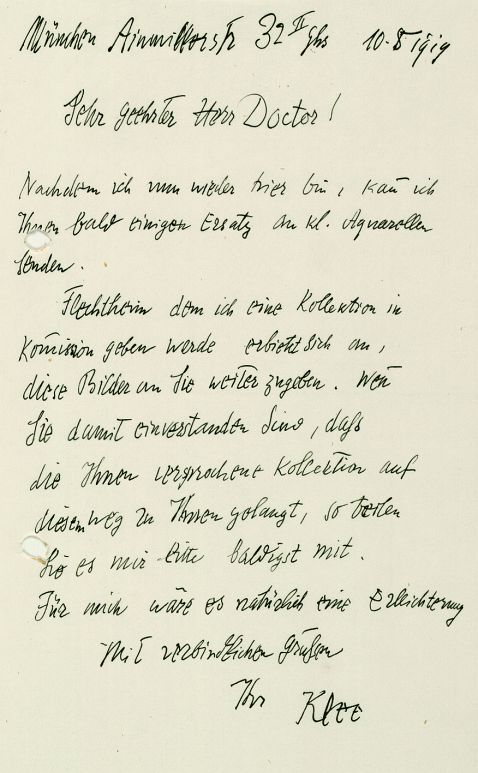 München Ainmillerstr 32 II Ghs 10.5 1919
Sehr geehrter Herr Doctor!
Nachdem ich nun wieder hier bin, kan̄ ich
Ihnen bald einigen Ersatz an kl. Aquarellen
senden.
Flechtheim dem ich eine Kollektion in
Kom̄ission geben werde erbietet sich an,
diese Bilder an Sie weiter zugeben. Wen̄
Sie damit einverstanden sind, dass
die Ihnen versprochene Kollektion auf
diesem weg zu Ihnen gelangt, so teilen
Sie es mir bitte baldigst mit.
Für mich wäre es natürlich eine Erleichterung
Mit verbindlichen Grüßen
Ihr Klee